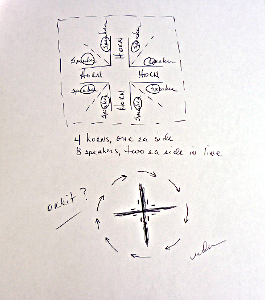 speaker HORN speaker
speaker speaker
HORN HORN
speaker speaker
speaker HORN speaker
4 horns, one ea side
8 speakers, two ea side in line
orbit?